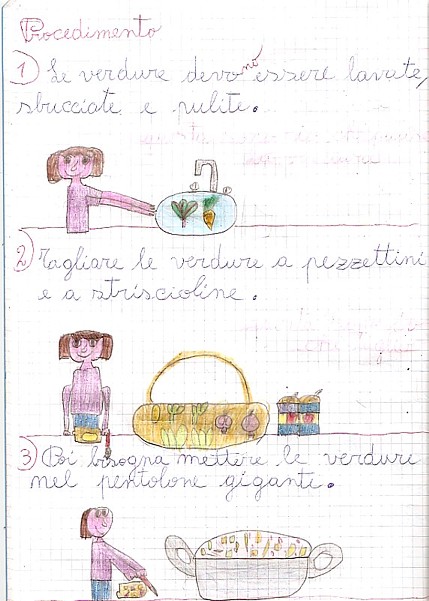 Procedimento
1) Le verdure devono essere lavate,
sbucciate e pulite.
2) Tagliare le verdure a pezzettini
e a striscioline.
3) Poi bisogna mettere le verdure
nel pentolone gigante.